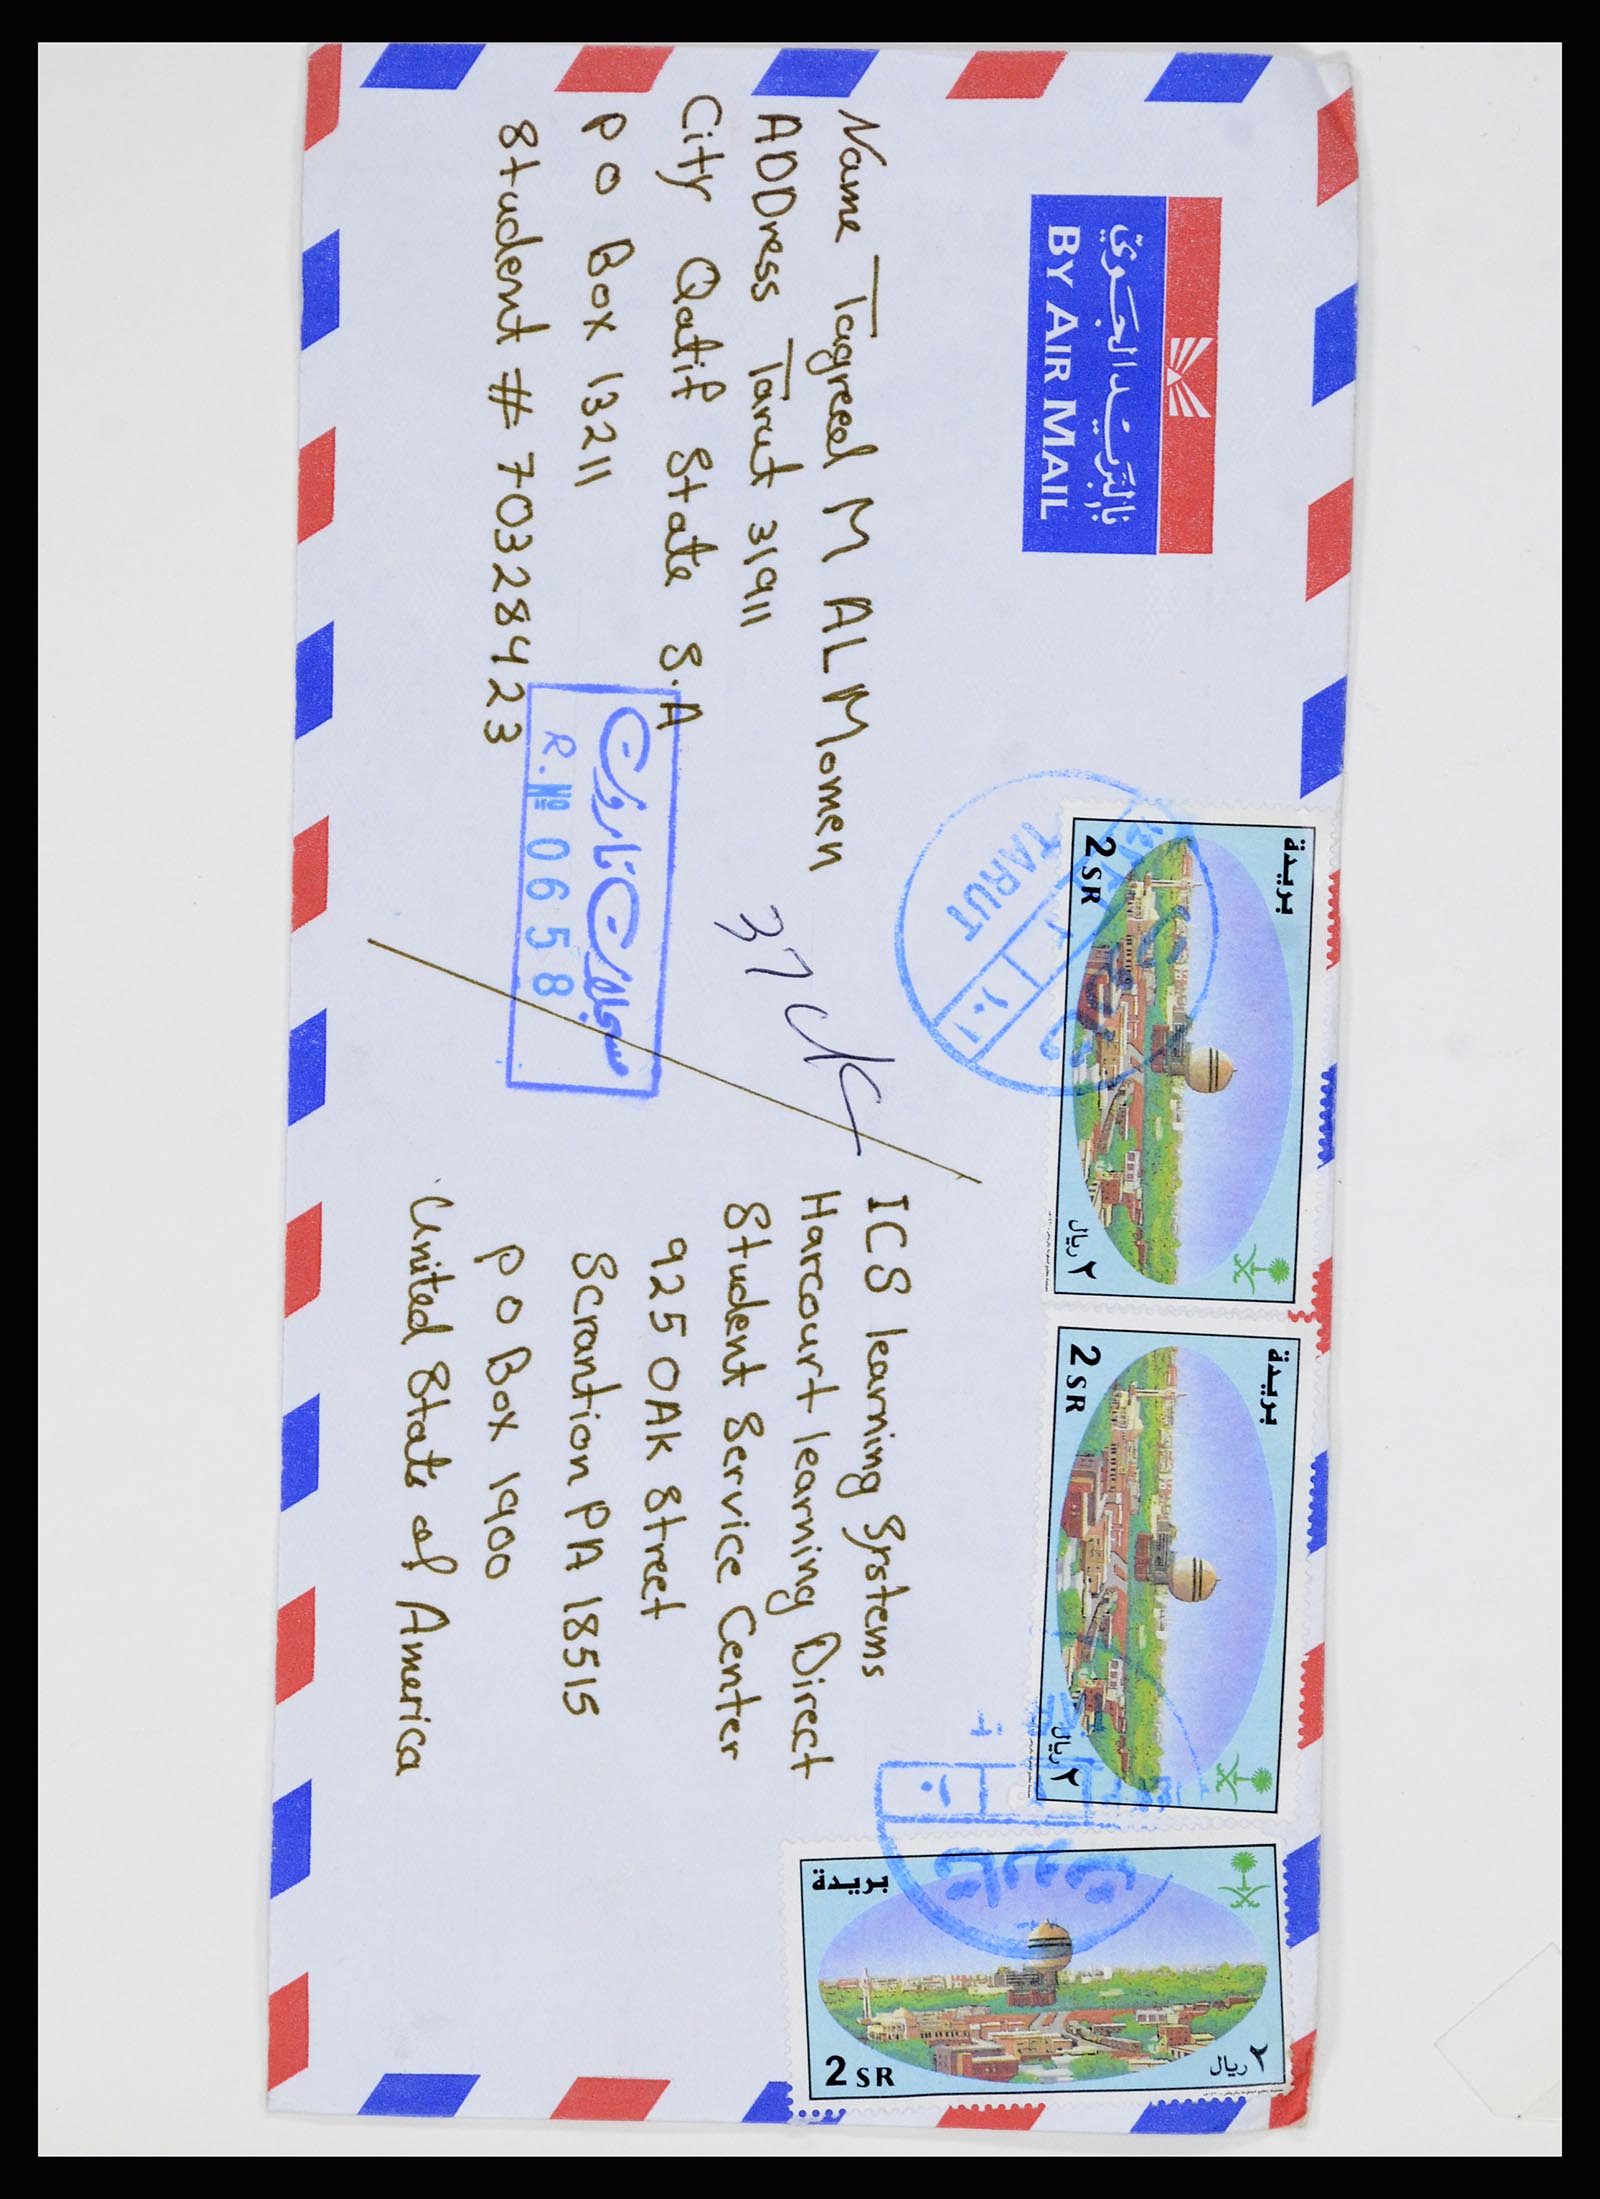 بالبريد الجوي
BY AIR MAIL
Name Tagreed M AL Momen
ADDress Tarut 31911
City Qatif State S.A
P O Box 13211
Student # 703284423
مسجل تاروت
R.No 0658
37
TARUT
ICS learning Systems
Harcourt learning Direct
Student Service Center
925 OAK Street
Scrantion PA 18515
P O Box 1900
United State of America
بريدة
2 SR
٢ ريال
بريدة
2 SR
٢ ريال
تاروت
بريدة
2 SR
٢ ريال